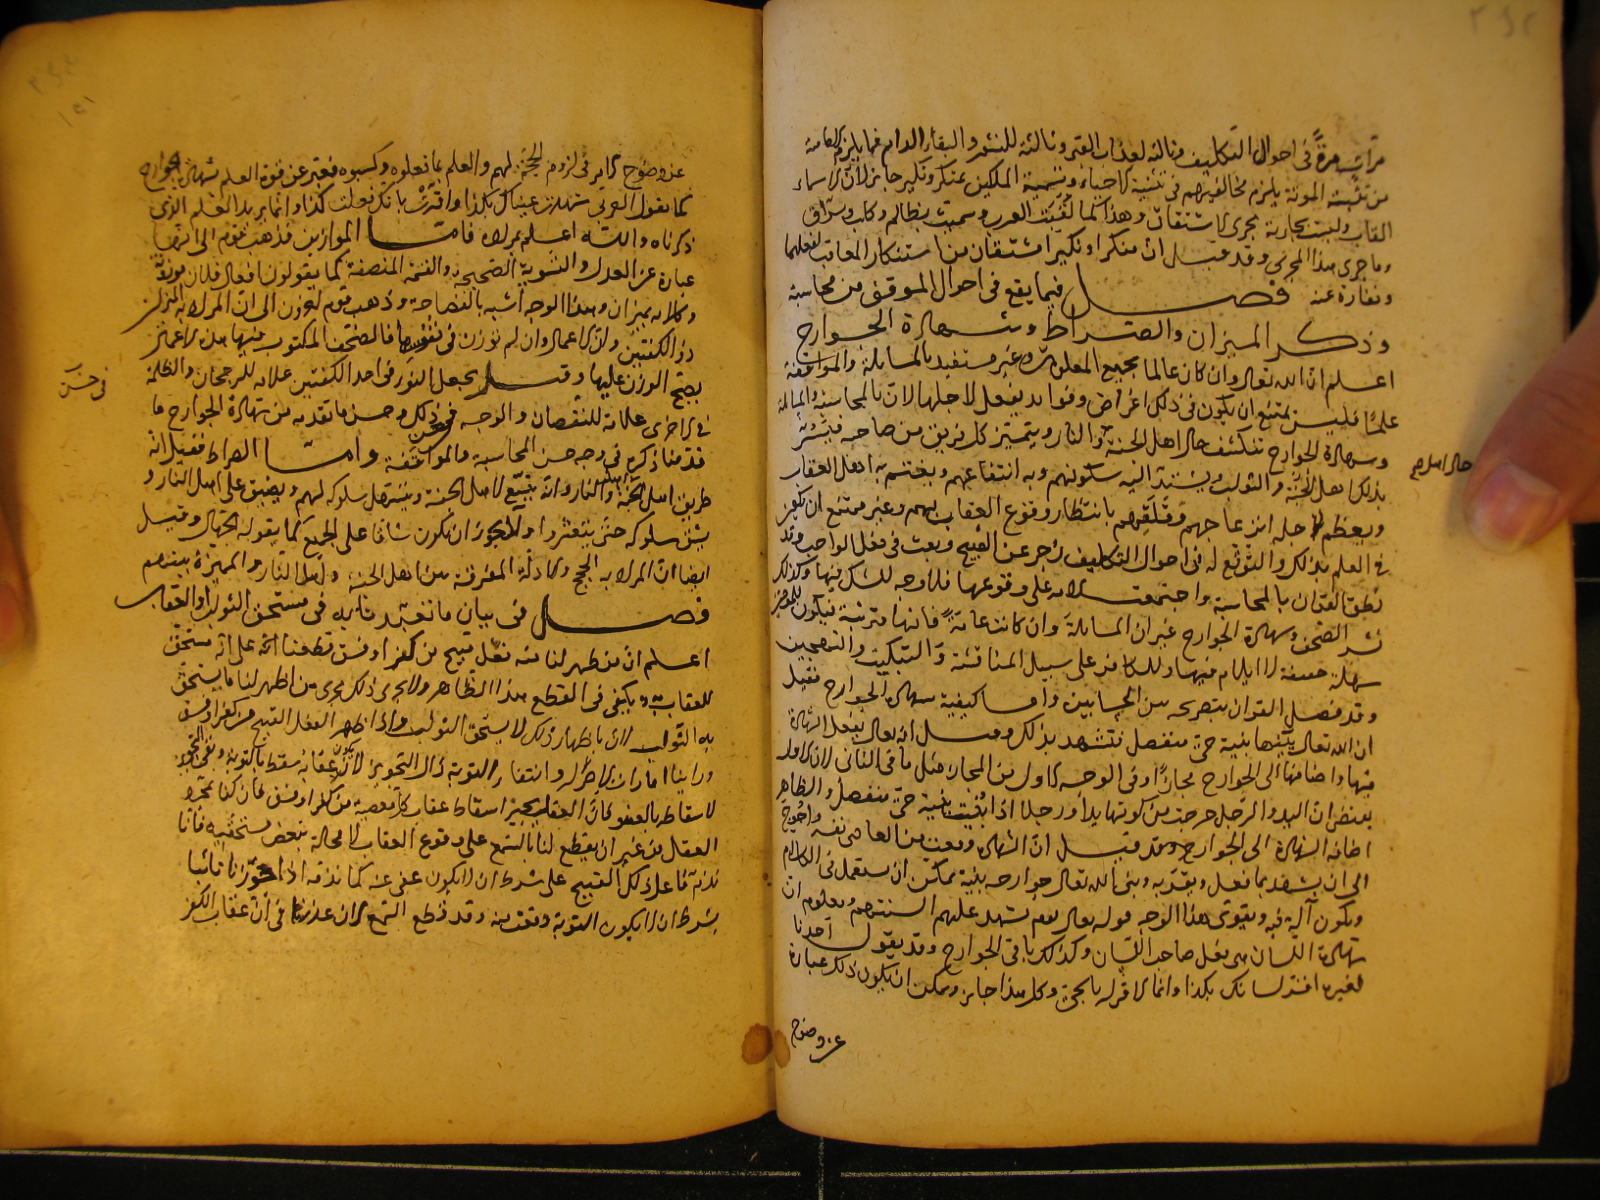 مرات مرة في احوال التكليف وثانية لعذاب القبر وثالثة للنشور والبقاء الدائم فما يلزم الامامية
من تثبيته الموتة يلزم مخالفيهم في تثنية الاحياء وتسمية الملكين بمنكر ونكير جايز لان الاسماء
القاب وليست بجارية مجرى الاشتقاق وهذا كما لقبت العرب وسمت بظالم وكلب وسراق
وما جرى هذا المجرى وقد قيل ان منكرا ونكيرا اشتقاق من استنكار المعاقب لفعلهما
ونفاره عنه فصل فيما يقع في احوال الموقف من محاسبة
وذكر الميزان والصراط وشهادة الجوارح
اعلم ان الله تعالى وان كان عالما بجميع المعلومات وغير مستفيد بالمسائلة والمواقفة
علما فليس يمتنع ان يكون في ذلك اغراض وفوايد يفعل لاجلها لان بالمحاسبة والمسائلة
وشهادة الجوارح تنكشف حال اهل الجنة والنار ويتميز كل فريق من صاحبه فيسر
بذلك اهل الجنة والثواب ويشتد اليه سكونهم وبه انتفاعهم ويغتم به اهل العقاب
ويعظم لاجله انزعاجهم وقلقهم بانتظار وقوع العقاب بهم وغير ممتنع ان يكون
في العلم بذلك والتوقع له في احوال التكليف زجر عن القبيح وبعث في فعل الواجب وقد
نطق القران بالمحاسبة واجتمعت الامة على وقوعها فلا وجه للشك فيها وكذلك
نشر الصحف وشهادة الجوارح غير ان المسائلة وان كانت عامة فانها مترتبة فيكون للمؤمنين
سهلة خفيفة لا ايلام فيها وللكافر على سبيل المناقشة والتبكيت والتهجين
وقد فصل القران بتصريحه بين الحسابين واما كيفية شهادة الجوارح فقيل
ان الله تعالى يبنيها بنية حي منفصل فتشهد بذلك وقيل انه تعالى يفعل الشهادة
فيها واضافها الى الجوارح مجازا وفي الوجه الاول من المجاز مثل ما في الثاني لان الاول
يقتضي ان اليد والرجل خرجت من كونها يدا ورجلا اذا بنيت بنية حي منفصل والظاهر
اضافة الشهادة الى الجوارح وقد قيل ان الشهادة وقعت من العاصي نفسه واحوج
الى ان يشهد بما فعل ويقر به وبنى الله تعالى جوارحه بنية يمكن ان تستعمل في الكلام
ويكون آلة فيه ويقوي هذا الوجه قوله تعالى يوم تشهد عليهم السنتهم ومعلوم ان
شهادة اللسان هي فعل صاحب اللسان وكذلك باقي الجوارح وقد يقول احدنا
لغيره اقر لسانك بكذا وانما الاقرار بالحي وكل هذا جايز ويمكن ان يكون ذلك عبارة
عن وضوح
حال اهل
عن وضوح الامر في لزوم الحجة لهم والعلم بما فعلوه وكسبوه فعبر عن قوة العلم بشهادة الجوارح
كما يقول العربي شهدت عيناك بكذا واقرت بانك فعلت كذا وانما يريد العلم الذي
ذكرناه والله اعلم بمراده فاما الموازين فذهب قوم الى انها
عبارة عن العدل والتسوية الصحيحة والقسمة المنصفة كما يقولون افعال فلان موزونة
وكلامه بميزان وهذا الوجه اشبه بالفصاحة وذهب قوم اخرون الى ان المراد به الميزان
ذو الكفتين وان الاعمال وان لم توزن في نفوسها فالصحف المكتوب فيها هذه الاعمال
يصح الوزن عليها وقيل يجعل النور في احد الكفتين علامة للرجحان والظلمة
في الاخرى علامة للنقصان والوجه في حسن ذلك وحسن ما تقدمه من شهادة الجوارح ما
قدمنا ذكره في وجه حسن المحاسبة والمواقفة واما الصراط فقيل انه
طريق اهل الجنة والنار وانه يتسع لاهل الجنة ويتسهل سلوكه لهم ويضيق على اهل النار و
يشق سلوكه حتى يتعثروا ولا يجوز ان يكون شاقا على الجميع كما يقوله الجهال وقيل
ايضا ان المراد به الحجج والادلة المفرقة بين اهل الجنة واهل النار والمميزة بينهم
فصل في بيان ما نتعبد نا به في مستحق الثواب والعقاب
اعلم ان من ظهر لنا منه فعل قبيح من كفر او فسق قطعنا على انه مستحق
للعقاب ويكفي في القطع هذا الظاهر ولا يجري ذلك مجرى من اظهر لنا ما يستحق
به الثواب لان باظهار ذلك لا يستحق الثواب واذا ظهر الفعل القبيح من كفر او فسق
وراينا امارات الاصرار وانتفاء التوبة زال التجويز لان يكون عقابه سقط بالتوبة وبقي التجويز
لاسقاطه بالعفو فان العقل يجيز اسقاط عقاب كل معصية من كفر او فسق فان كنا نجوز
العقل من غير ان يقطع لنا بالسمع على وقوع العقاب لا محالة ببعض مستحقيه فانا
نذم فاعل ذلك القبيح على شرط ان لا يكون عفي عنه كما نذمه اذا جوزنا تائبا
بشرط ان لا يكون التوبة وقعت منه وقد قطع السمع لان عذرنا في ان عقاب الكفر
في حسن